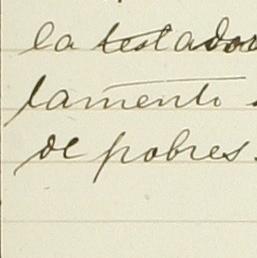 la testador
tamento
de pobres.